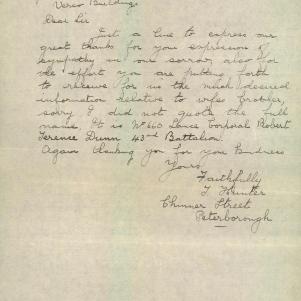 Verco Buildings
Dear Sir
Just a line to express our
great thanks for your expression of
sympathy in our sorrow, also for
the effort you are putting forth
to receive for us the much desired
information relative to
sorry I did not quote the full
name. It is No 660 Lance Corporal Robert
Terence Drunn 43rd Battalion.
Again thanking you for your kindness
Yours
Faithfully
T Hunter
Chinner Street
Peterborough